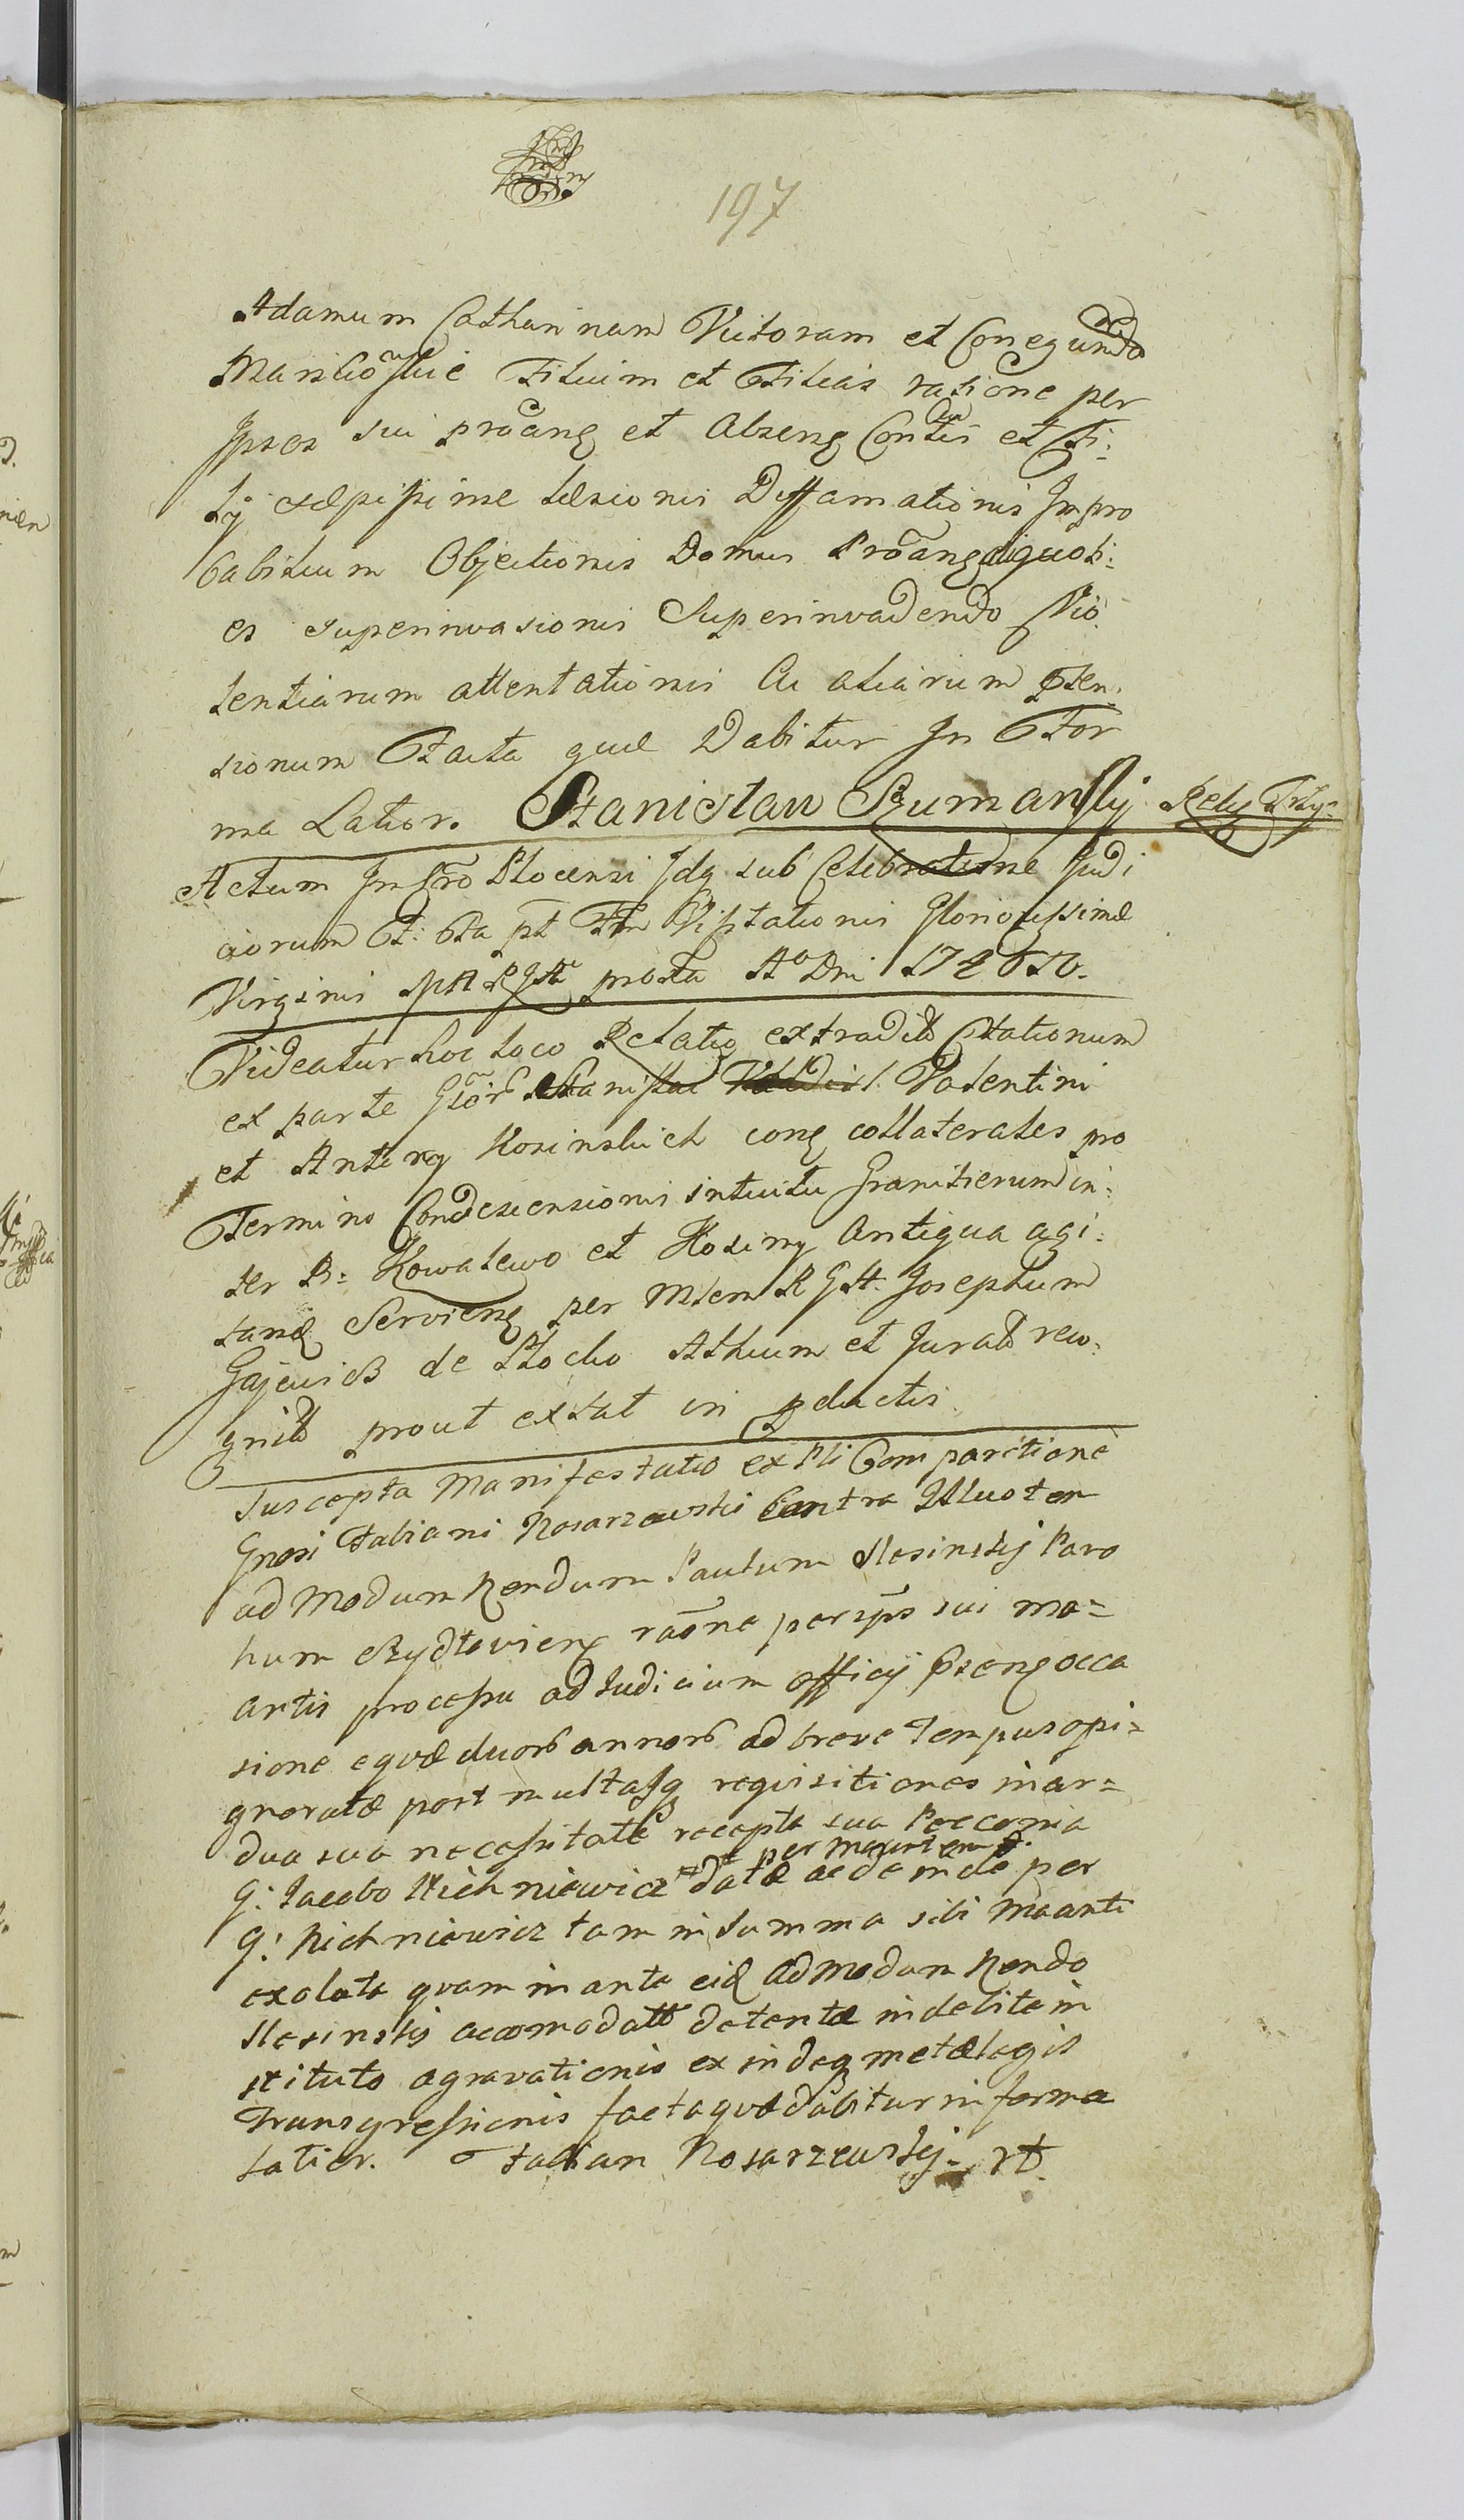 197
Adamum Catharinam Victoram et Conegundã
Mańkowskie Filium et Filias ratione per
Ipsos sui prõtang et Abseng Contis et Fi:
ly sæpissime læsionis Diffamationis Impro
babilium Objectionis Domus Prõtang aliquoti:
es superinvasionis Superinvadendo Vio
lentiarum attentationis Ac aliarum pten:
sionum Facta quæ Dabitur In For
ma Latior. Stanisław Szumanskÿ
Actum In Cro Plocensi fdq sub Celebratione Judi
ciorum Ft: 6ta pt Ftm Visitationis Gloriosissimæ
Virginis MARIÆ proxa A° Dni
Videatur hoc loco Relatio extradit Citationum
ex parte Stanislai Valentini
et Antony Kosinskich conq collaterales pro
Termino Condescensionis intuitu Granitierum in:
ter B: Kowalewo et Kosiny Antiqua agi:
tand Servieng per Mtem RGH Josephum
Gajewicz de Plocko Athum et Jurat reco:
gnit prout extat in pductis
Suscepta Manifestatio ex Pli Comparitione
Gnosi Fabiani Kosarzewski Contra Illustem
ad Modum Rendum Paulum Slesinskij Paro
hum raõne peripsũ sui ma=
antis processu ad Iudicium officij Pseng occa
sione equæ duorũ annorũ ad breve Tempus opi=
gnoratæ post multasq requisitiones in ar=
dua sua necessitate recepta sua Peccunia
per Maantem
G: Jacobo Michniewicz datæ ac deinde per
G: Michniewicz tam in Summa sibi Maanti
exoluta quam in ante eid Admodum Rendo
Slesinskij accomodatt detentæ indebite in
stituto agravationis exindeq metælegis
Transgressionis facta quæ dabitur in forma
latior. Fabian Kosarzewskij